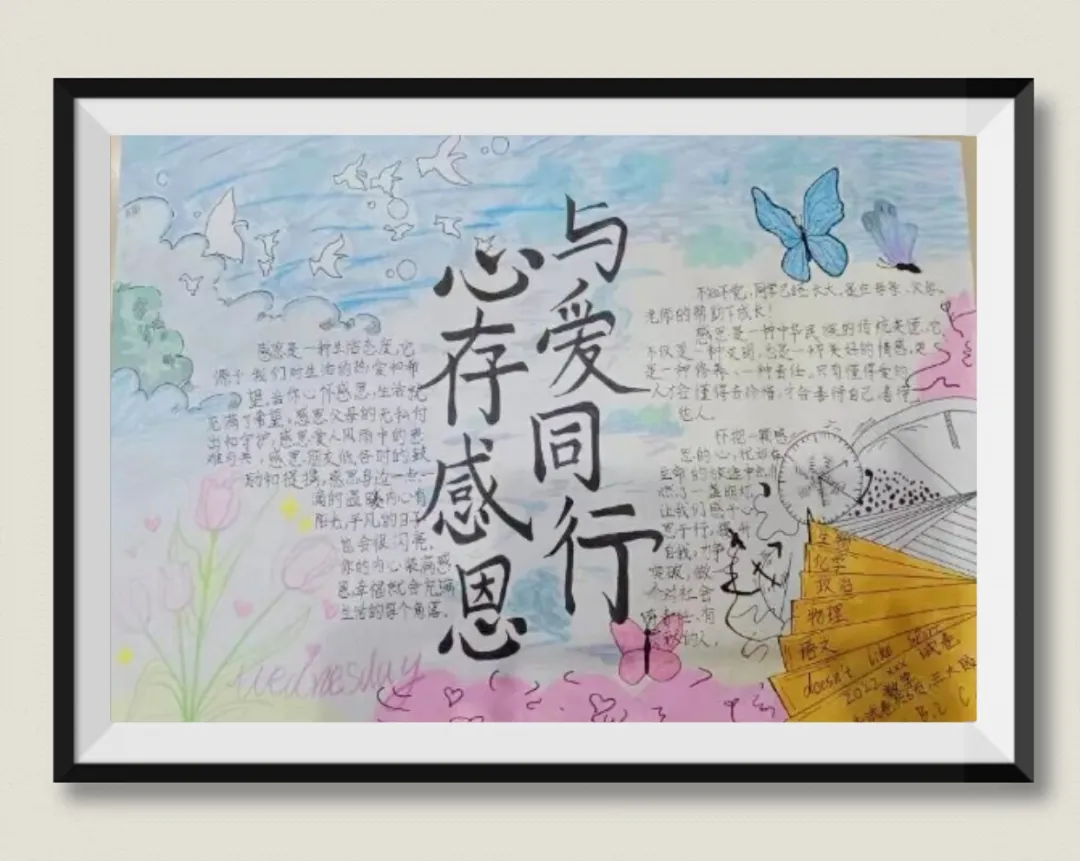 与爱同行
心存感恩
感恩是一种生活态度,它
源于我们对生活的热爱和希
望。当你心怀感恩,生活就
充满了希望,感恩父母的无私付
出和守护,感恩爱人风雨中的患
难与共,感恩朋友低谷时的鼓
励和提携,感恩身边一点一
滴的温暖内心有
阳光,平凡的日子
也会很闪亮。
你的内心装满感
恩幸福就会充满
生活的每个角落。
不知不觉,同学已经长大,是在母亲、父亲、
老师的帮助下成长!
感恩是一种中华民族的传统美德,它
不仅是一种文明,也是一种美好的情感,更
是一种修养、一种责任。只有懂得爱的
人才会懂得去珍惜,才会善待自己、善待
他人。
怀抱一颗感
恩的心,犹如在
生命的旅途中
燃了一盏明灯,
让我们感于心
恩于行,提升
自我,力争
突破,做一
个对社会
有
的人。
生物
化学
政治
物理
语文
doesn't like
2022 xxx 试卷
数学
B.2 C
Wednesday